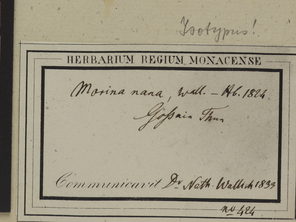 Isotypus!
HERBARIUM REGIUM MONACENSE
Morina nana, Wall. — Hb. 1824.
Gossain Than
Communicavit Dr. Nath. Wallich 1833
no 424